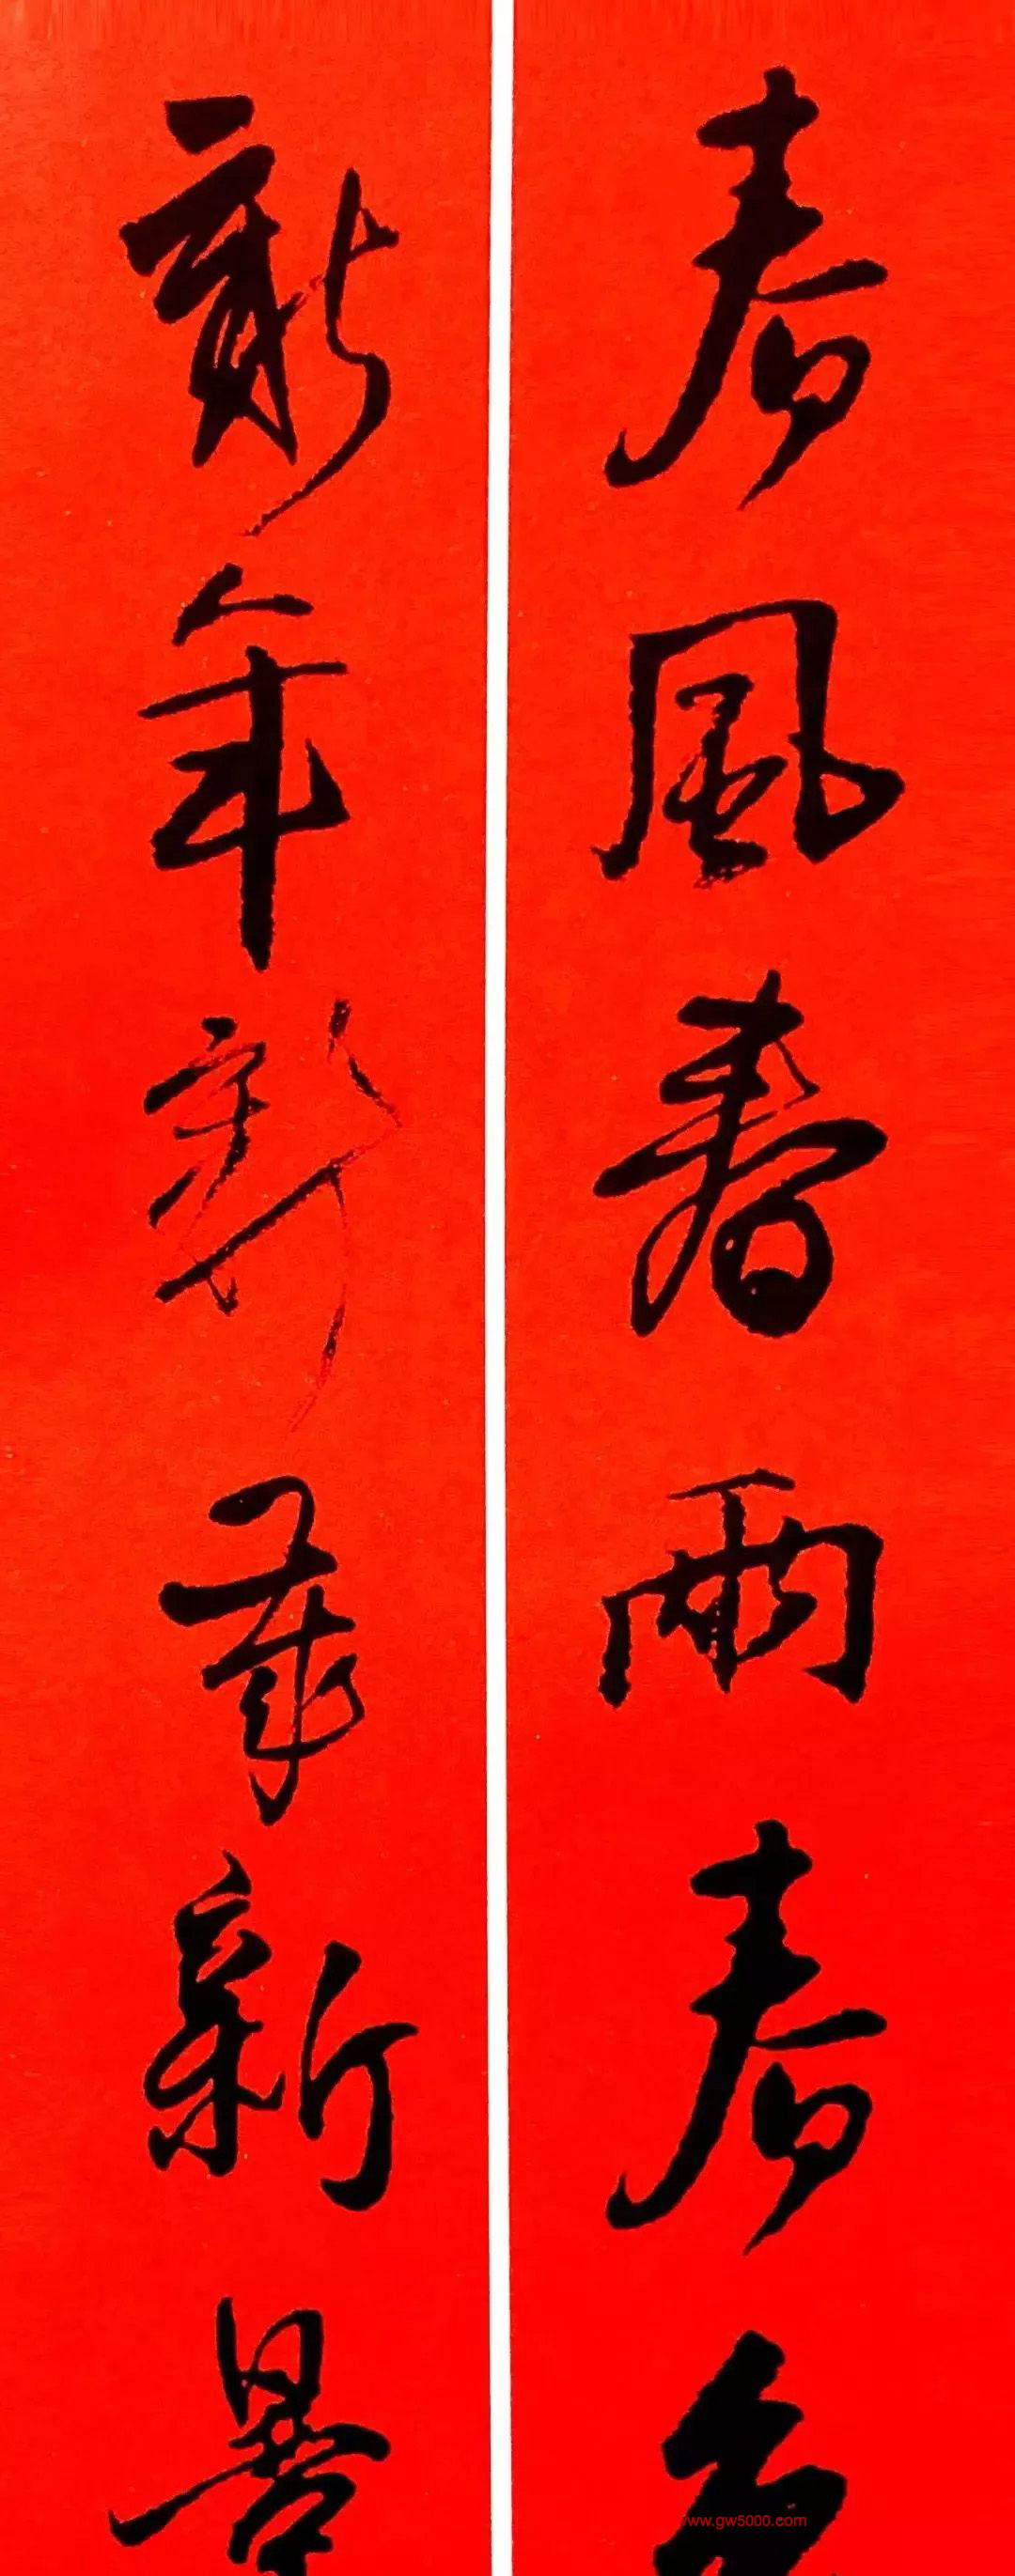 春風春雨春色
新年新歲新景
www.gw5000.com